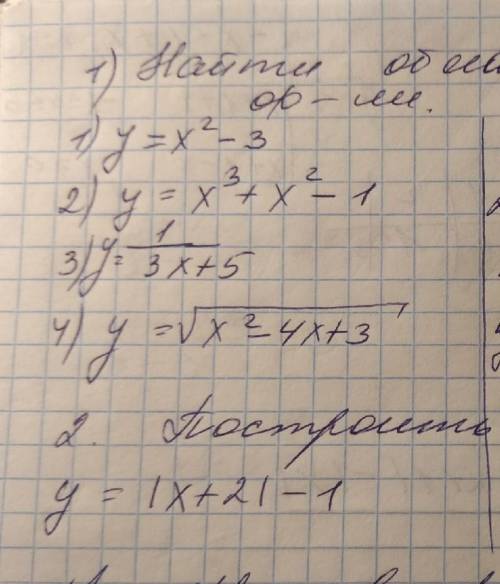 1) Найти
ф-ии.
1) y = x² - 3
2) y = x³ + x² - 1
3) y = 1/(3x+5)
4) y = √(x² - 4x + 3)
2. Построить
y = |x+2| - 1